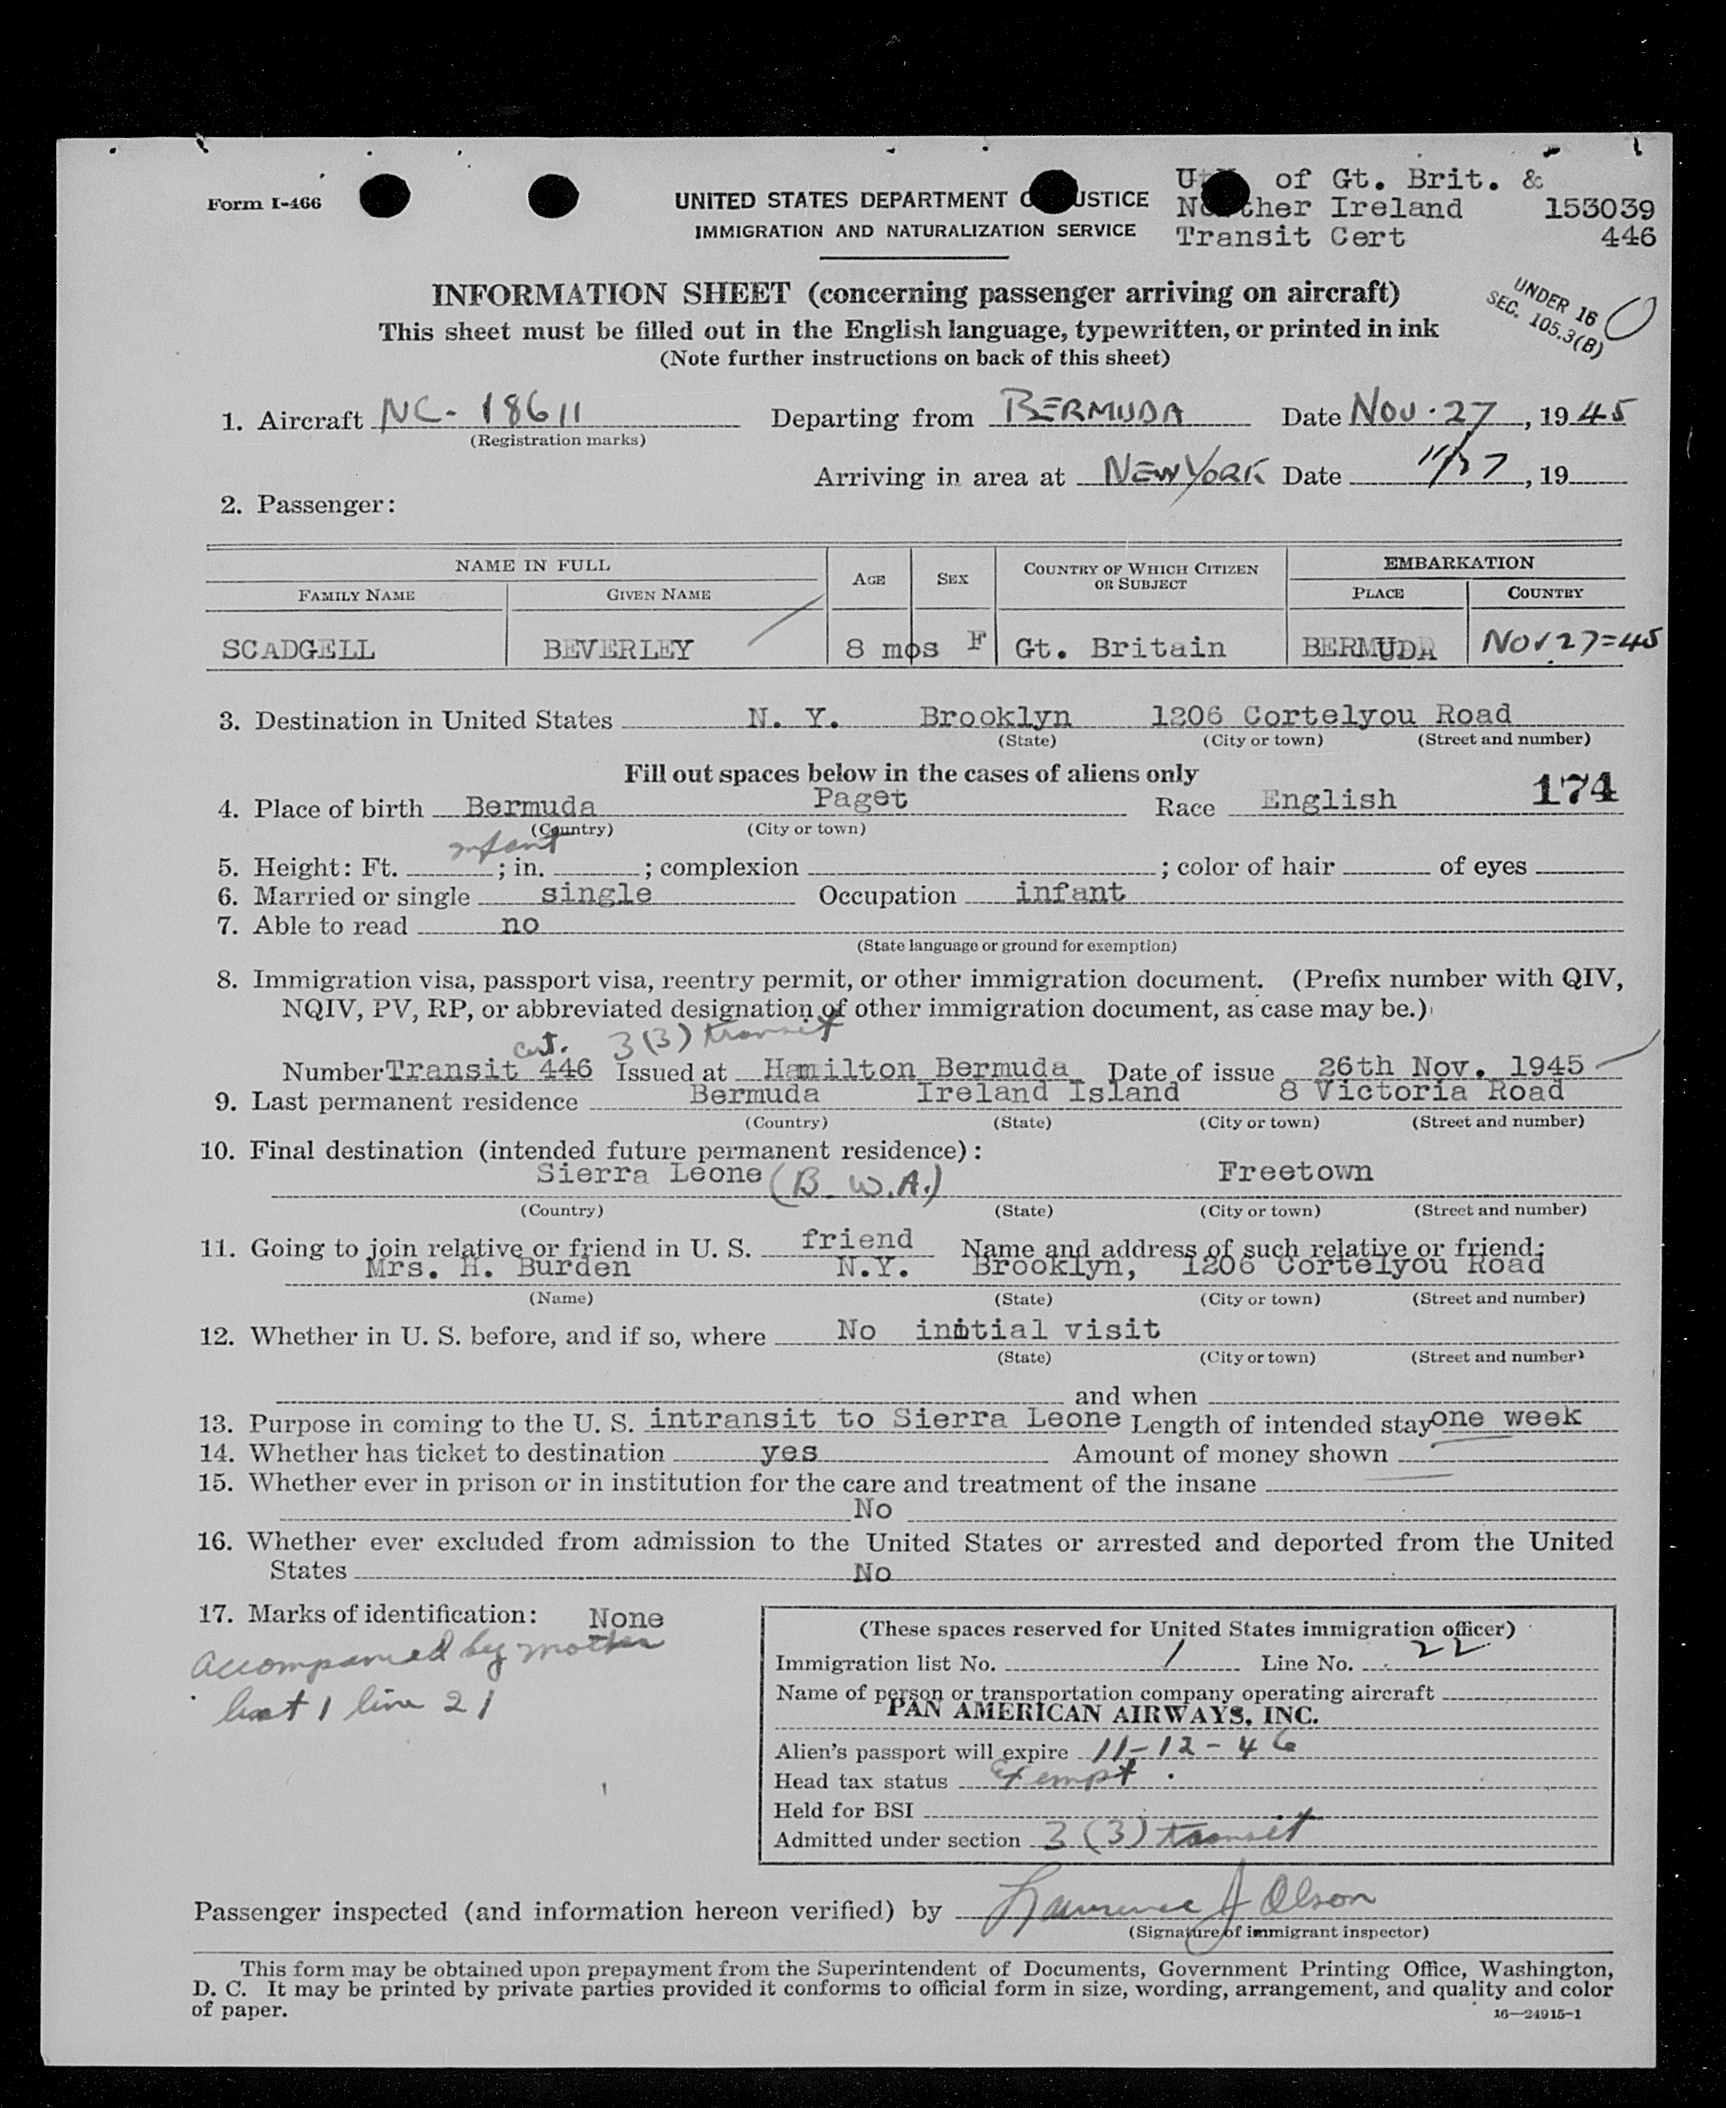 Form I-466
UNITED STATES DEPARTMENT OF JUSTICE
IMMIGRATION AND NATURALIZATION SERVICE
of Gt. Brit. &
Norther Ireland 153039
Transit Cert 446
INFORMATION SHEET (concerning passenger arriving on aircraft)
This sheet must be filled out in the English language, typewritten, or printed in ink
(Note further instructions on back of this sheet)
UNDER 16
SEC. 105.3(B)
1. Aircraft NC-18611 Departing from BERMUDA Date NOV. 27, 1945
(Registration marks)
Arriving in area at NEW YORK Date 11/27, 19
2. Passenger:
NAME IN FULL AGE SEX COUNTRY OF WHICH CITIZEN OR SUBJECT EMBARKATION
FAMILY NAME GIVEN NAME PLACE COUNTRY
SCADGELL BEVERLEY 8 mos F Gt. Britain BERMUDA Nov 27=45
3. Destination in United States N. Y. Brooklyn 1206 Cortelyou Road
(State) (City or town) (Street and number)
Fill out spaces below in the cases of aliens only
4. Place of birth Bermuda Paget Race English 174
(Country) (City or town)
infant
5. Height: Ft. ; in. ; complexion ; color of hair of eyes
6. Married or single single Occupation infant
7. Able to read no
(State language or ground for exemption)
8. Immigration visa, passport visa, reentry permit, or other immigration document. (Prefix number with QIV,
NQIV, PV, RP, or abbreviated designation of other immigration document, as case may be.)
cert. 3(3) transit
Number Transit 446 Issued at Hamilton Bermuda Date of issue 26th Nov. 1945
9. Last permanent residence Bermuda Ireland Island 8 Victoria Road
(Country) (State) (City or town) (Street and number)
10. Final destination (intended future permanent residence):
Sierra Leone (B.W.A.) Freetown
(Country) (State) (City or town) (Street and number)
11. Going to join relative or friend in U. S. friend Name and address of such relative or friend:
Mrs. H. Burden N.Y. Brooklyn, 1206 Cortelyou Road
(Name) (State) (City or town) (Street and number)
12. Whether in U. S. before, and if so, where No initial visit
(State) (City or town) (Street and number)
and when
13. Purpose in coming to the U. S. intransit to Sierra Leone Length of intended stay one week
14. Whether has ticket to destination yes Amount of money shown
15. Whether ever in prison or in institution for the care and treatment of the insane
No
16. Whether ever excluded from admission to the United States or arrested and deported from the United
States No
17. Marks of identification: None
accompanied by mother
list 1 line 21
(These spaces reserved for United States immigration officer)
Immigration list No. 1 Line No. 22
Name of person or transportation company operating aircraft
PAN AMERICAN AIRWAYS, INC.
Alien's passport will expire 11-12-46
Head tax status Exempt.
Held for BSI
Admitted under section 3(3) transit
Passenger inspected (and information hereon verified) by Lawrence J Olson
(Signature of immigrant inspector)
This form may be obtained upon prepayment from the Superintendent of Documents, Government Printing Office, Washington,
D. C. It may be printed by private parties provided it conforms to official form in size, wording, arrangement, and quality and color
of paper.
16—24915-1